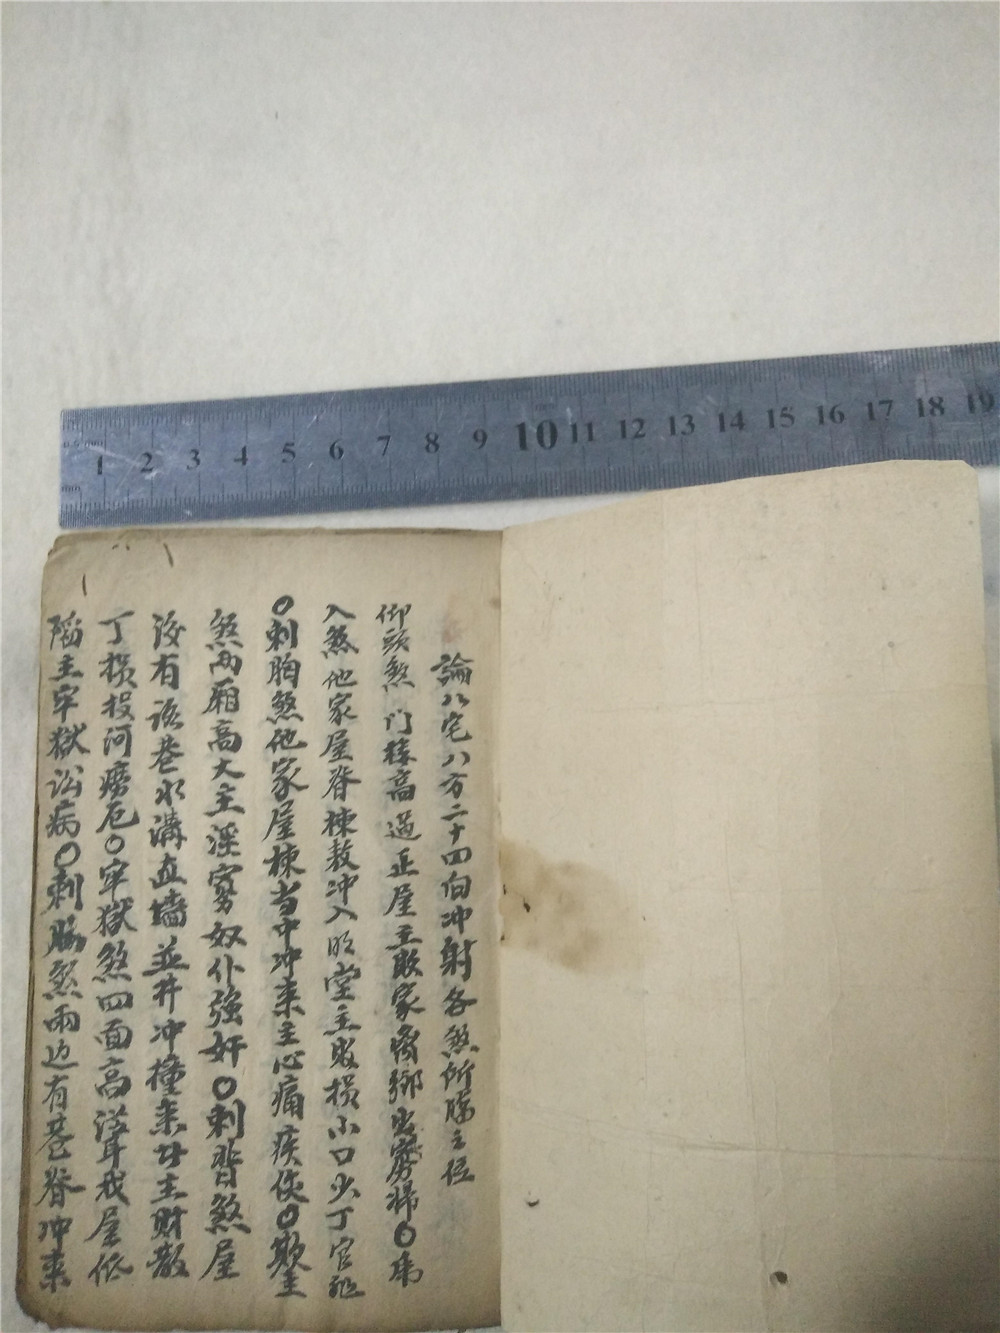 1 2 3 4 5 6 7 8 9 10 11 12 13 14 15 16 17 18 19
0.5 mm
論八宅八方二十四向冲射各煞所 之位
仰頭煞 门楼高过正屋主敗家离鄉出寡婦〇
入煞他家屋脊棟 冲入明堂主敗損小口火丁官
〇刺胸煞他家屋棟当中冲来主心痛疾 〇欺主
煞两廂高大主淫 奴仆強奸〇刺背煞屋
後有 巷水溝直墙並井冲撞来 主財散
丁損投河 厄〇牢獄煞四面高 我屋低
陷主牢獄讼病〇刺脇煞兩边有巷脊冲来